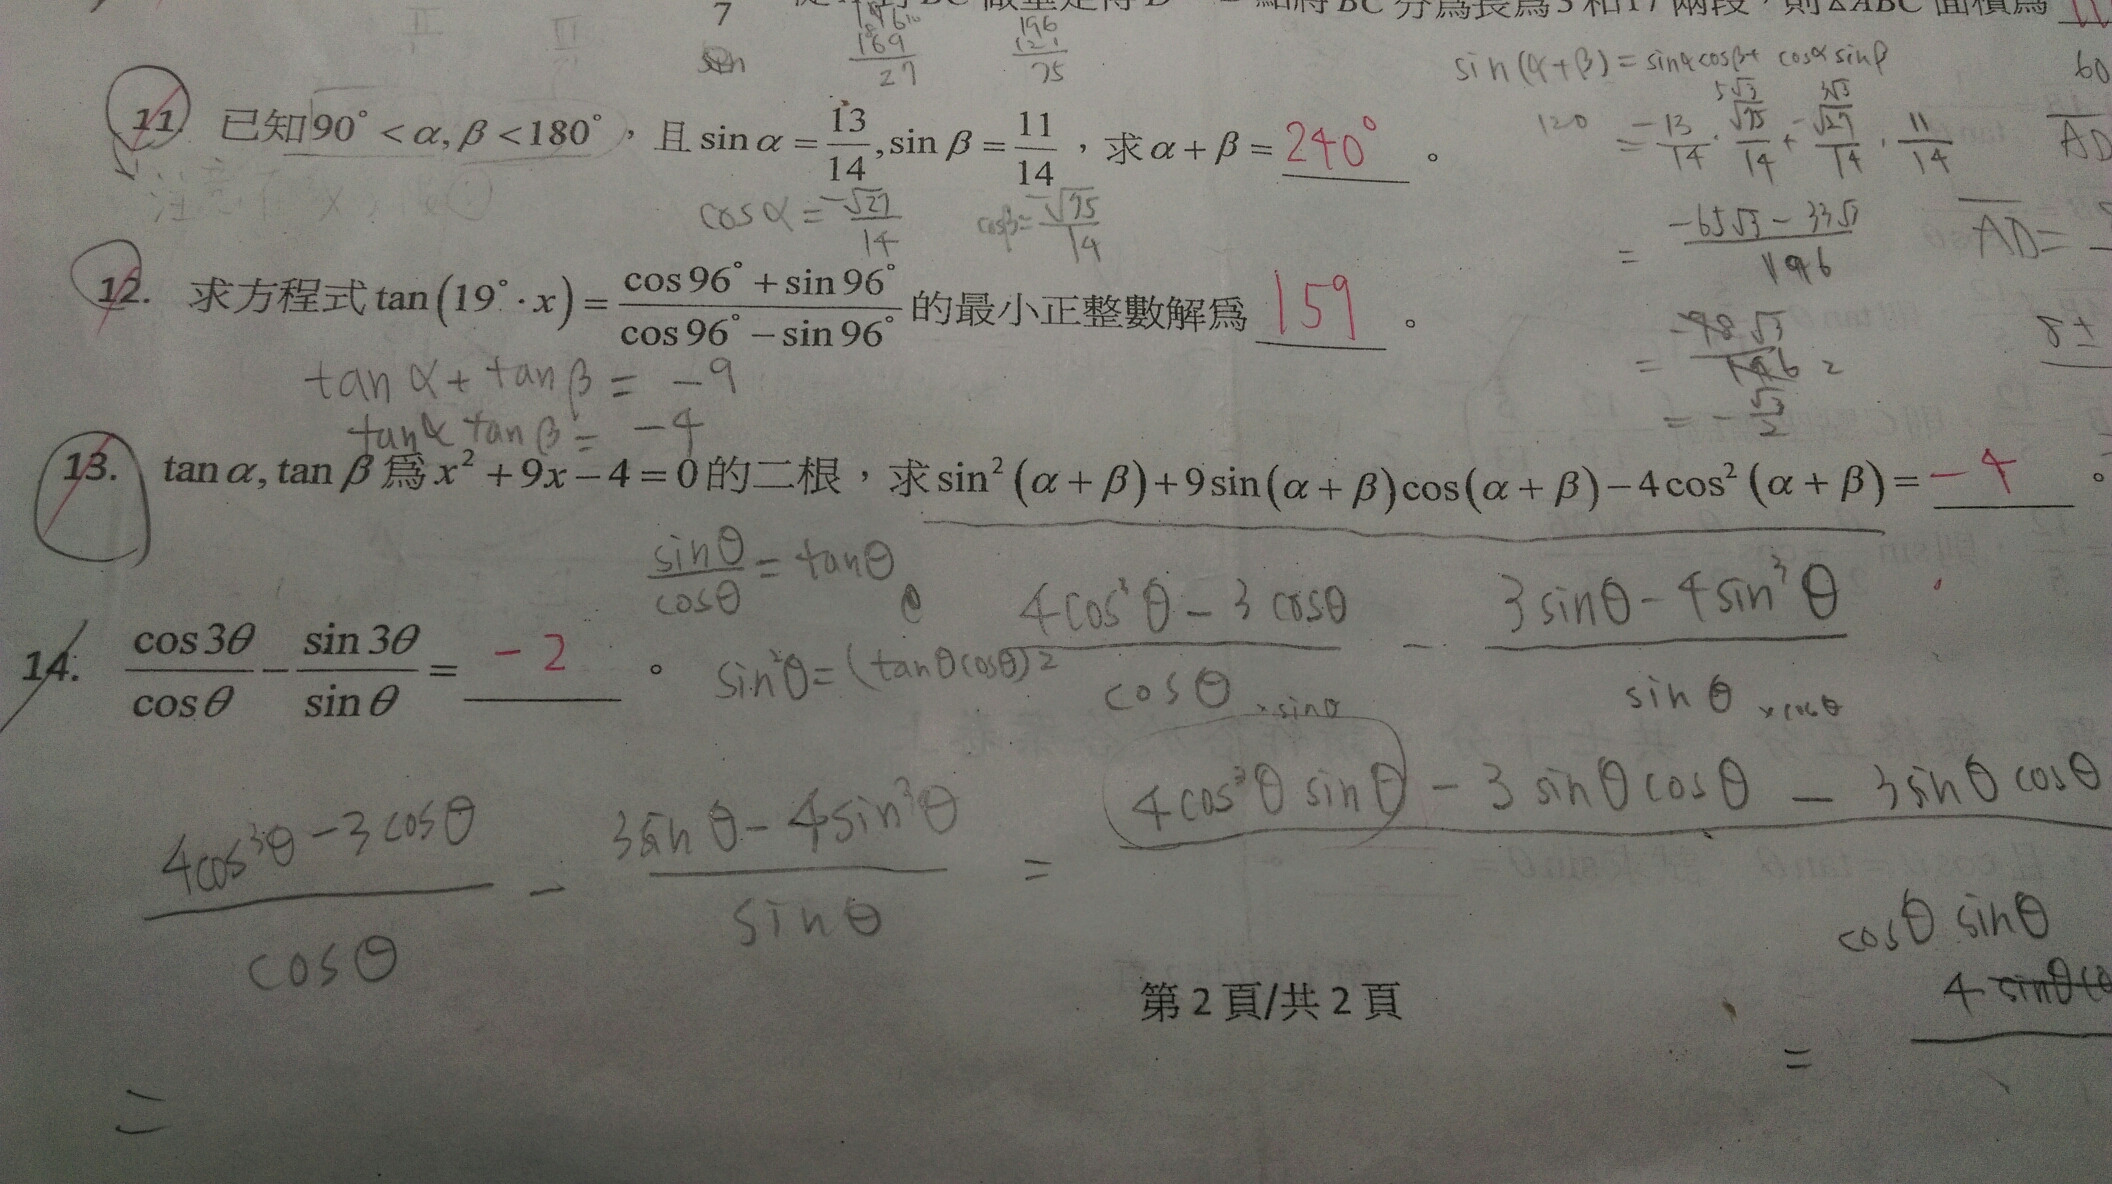 7
兩段，則△ABC 面積為
169
27
196
121
75
sin(α+β)=sinαcosβ+ cosαsinβ
60
11. 已知90°<α,β<180°，且sin α = 13/14, sin β = 11/14，求α+β= 240° 。
120
= -13/14 · √75/14 + -√27/14 · 11/14
5√3
3√3
AD
cosα = -√27/14
cosβ= -√75/14
= -65√3-33√3 / 196
AD=
12. 求方程式 tan(19°·x) = cos96°+sin96° / cos96°−sin96° 的最小正整數解為 159 。
= -98√3 / 196 2
8±
= -√3/2
tan α + tan β = -9
tanα tan β = -4
13. tan α, tan β 為 x²+9x−4=0的二根，求sin²(α+β)+9sin(α+β)cos(α+β)−4cos²(α+β)= -4 。
sinθ/cosθ = tanθ
4cos³θ-3cosθ / cosθ ×sinθ - 3sinθ-4sin³θ / sinθ ×cosθ
14. cos3θ/cosθ − sin3θ/sinθ = -2 。
sin²θ=(tanθcosθ)2
4cos³θ-3cosθ / cosθ - 3sinθ-4sin³θ / sinθ = 4cos³θ sinθ - 3 sinθ cosθ - 3sinθ cosθ
cosθ sinθ
第 2 頁/共 2 頁
= 4
=